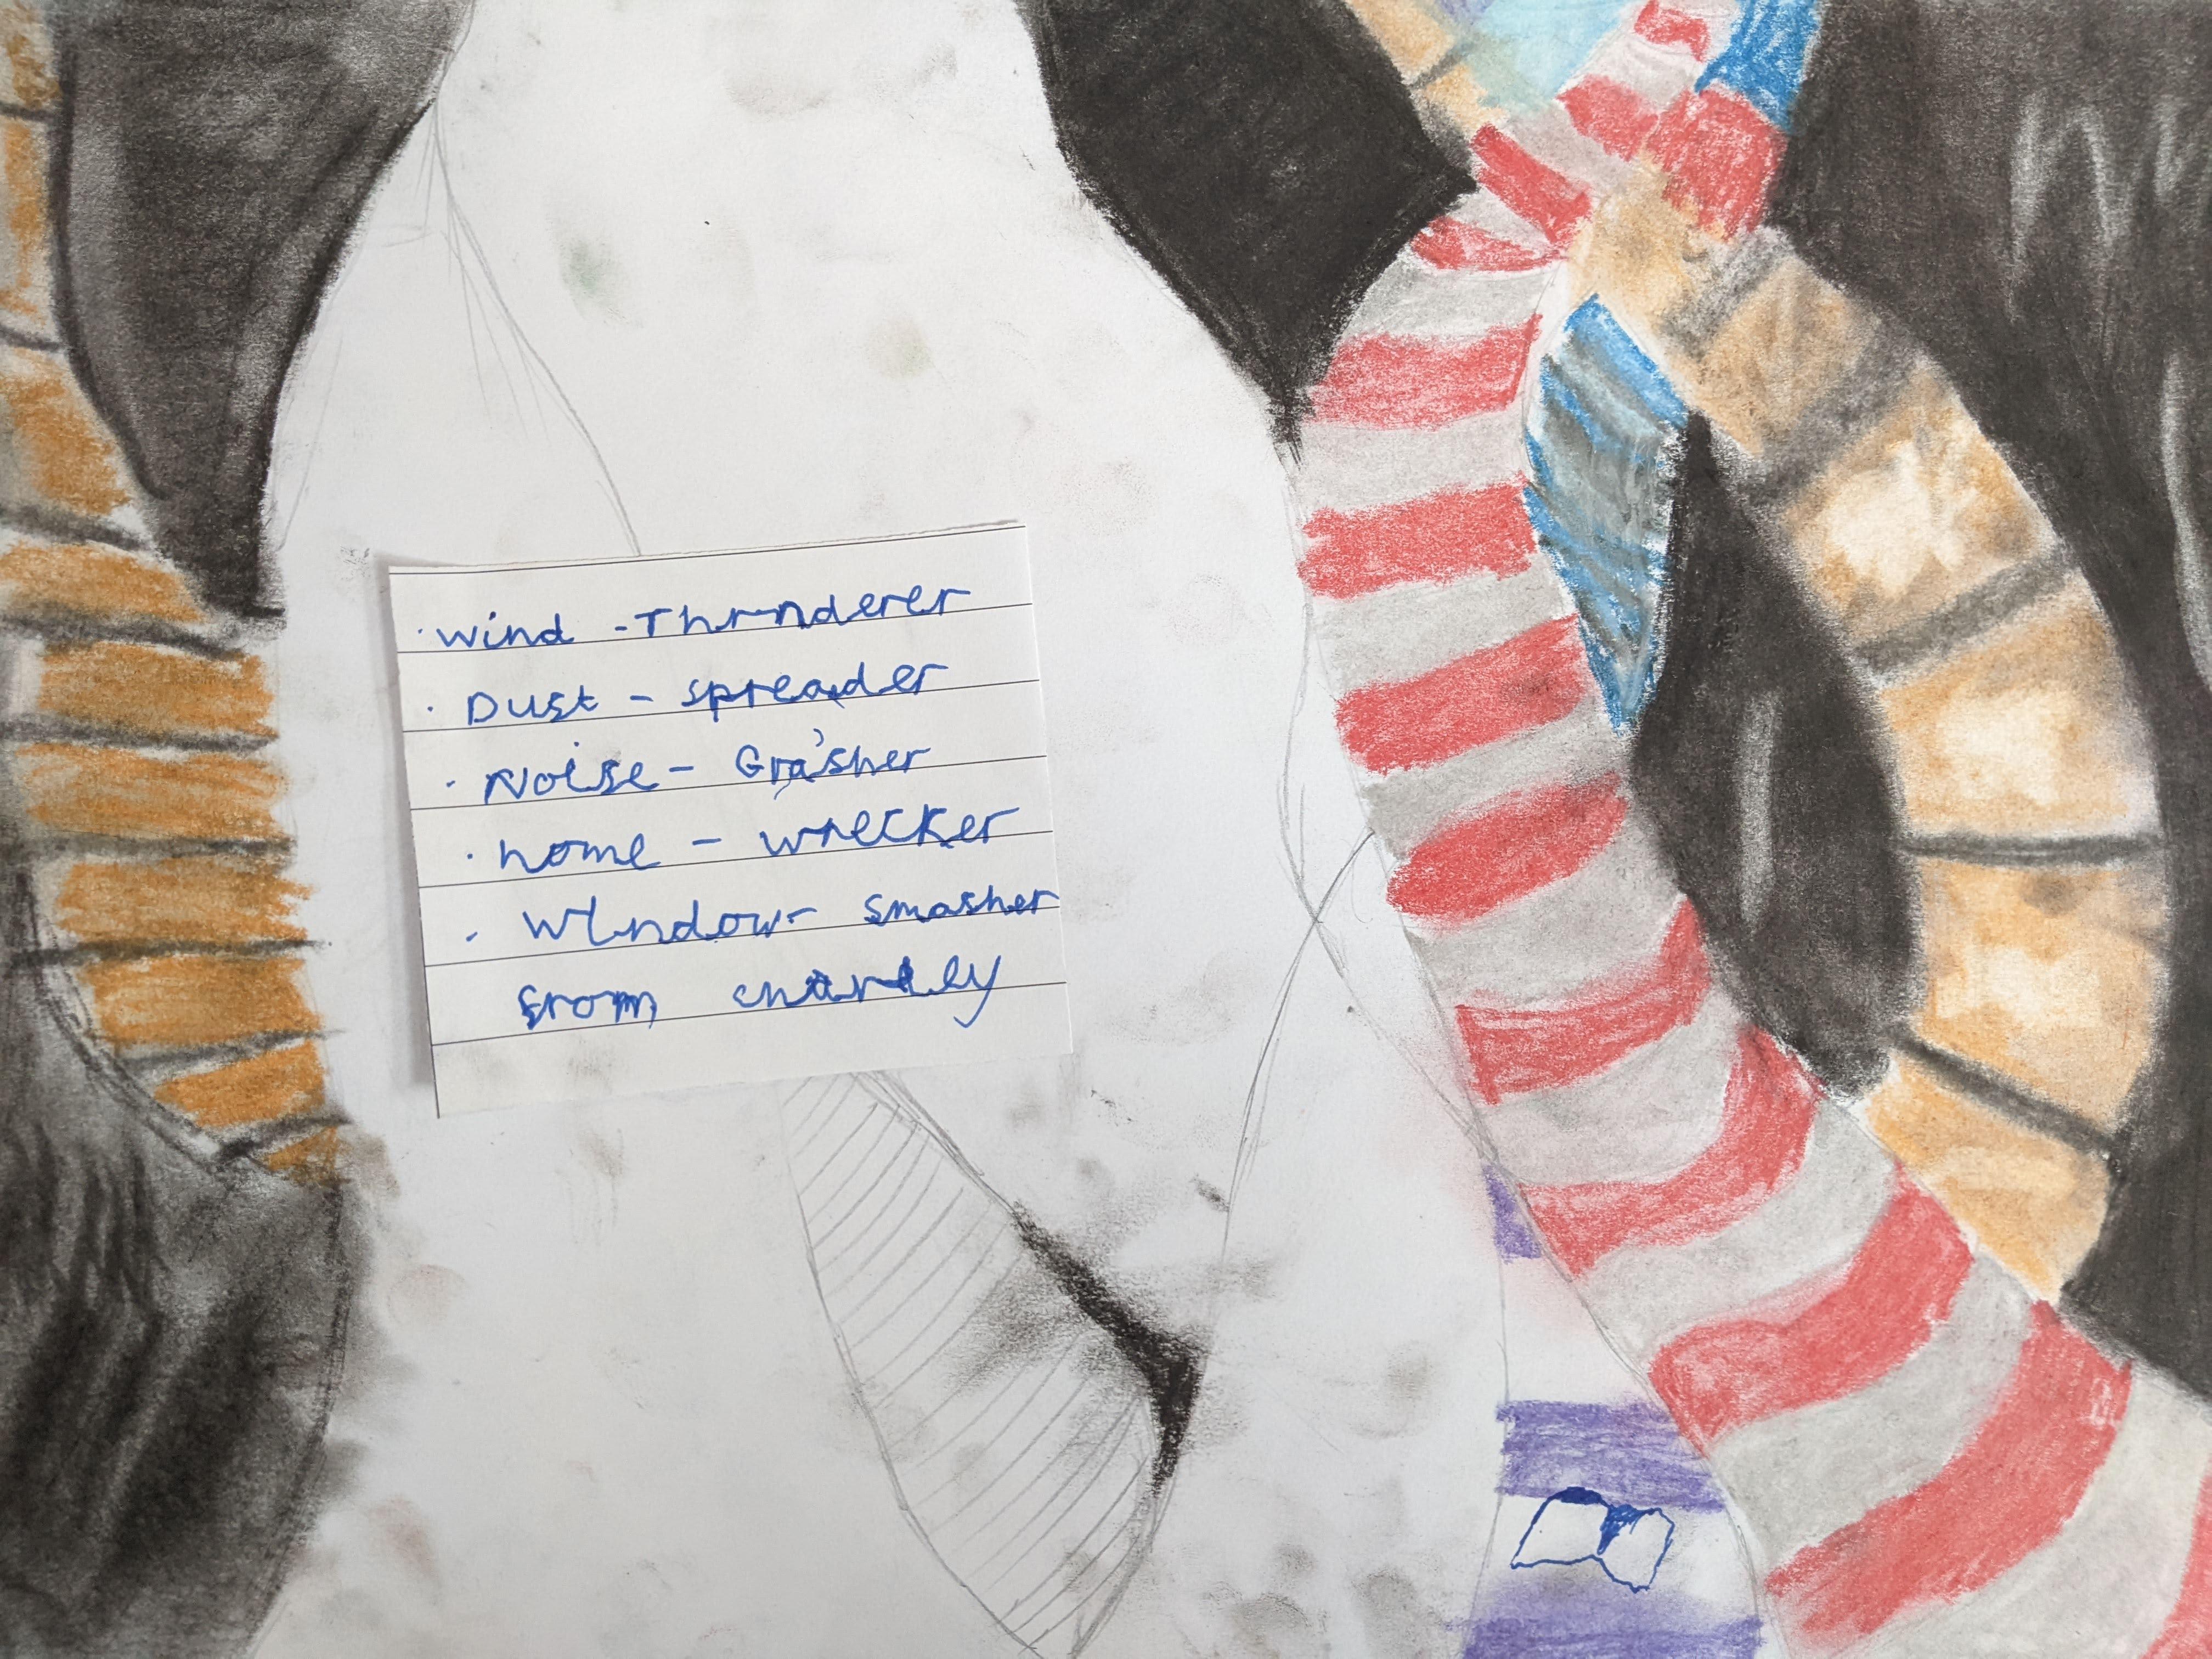 · wind - Thunderer
· Dust - spreader
· Noise - Grasher
· home - wrecker
· window - smasher
from charley